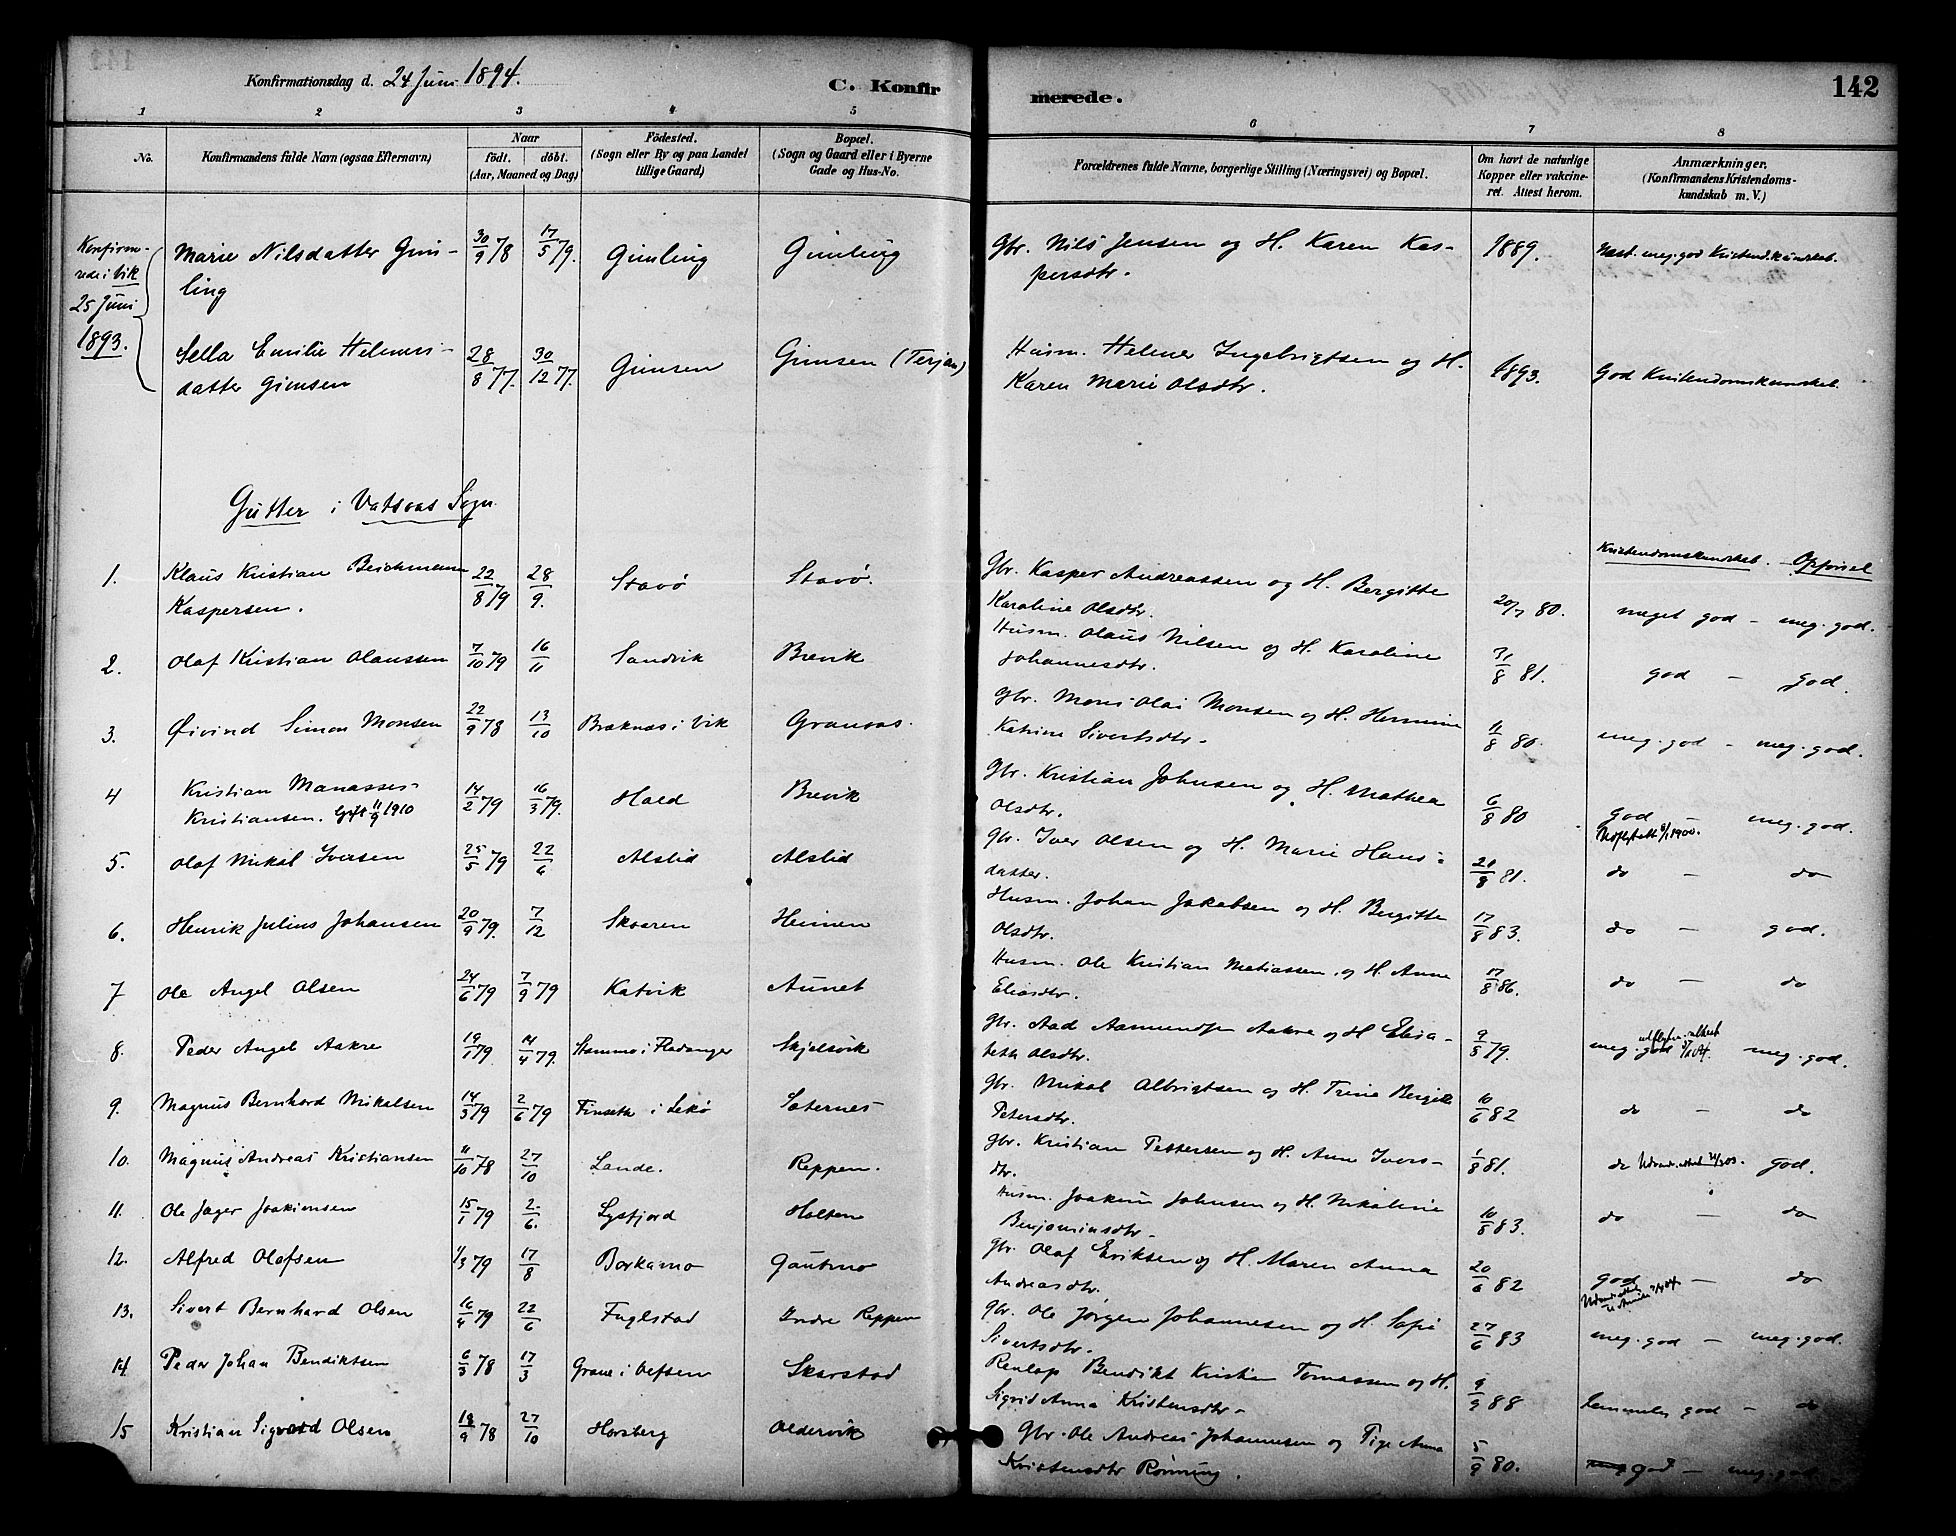 Konfirmationsdag d. 24 Juni 1894.
C. Konfirmerede.
142
1 2 3 4 5 6 7 8
No.
Konfirmandens fulde Navn (ogsaa Efternavn)
Naar
födt. döbt.
(Aar, Maaned og Dag)
Födested.
(Sogn eller By og paa Landet
tillige Gaard)
Bopæl.
(Sogn og Gaard eller i Byerne
Gade og Hus-No.
Forældrenes fulde Navne, borgerlige Stilling (Næringsvei) og Bopæl.
Om havt de naturlige
Kopper eller vakcine-
ret. Attest herom.
Anmærkninger.
(Konfirmandens Kristendoms-
kundskab m. V.)
Konfirme-
rede i Vik
25 Juni
1893.
Marie Nilsdatter Gim- 30/9 78 17/5 79. Gimling Gimling Gbr. Nils Jensen og H. Karen Kas- 1889. Næst. meg. god Kristend.kundskab.
ling persdtr.
Sella Emilie Helmers- 28/8 77. 30/12 77. Gimsen Gimsen (Terjan) Husm. Helmer Ingebrigtsen og H. 1893. God Kristendomskundskab.
datter Gimsen Karen Marie Olsdtr.
Gutter i Vatsaas Sogn.
Kristendomskundskab. - Opførsel
1. Klaus Kristian Beichmann 22/8 79 28/9. Stavø Stavø. Gbr. Kasper Andreassen og H. Bergitte 20/7 80. meget god - meg. god.
Kaspersen. Karoline Olsdtr.
2. Olaf Kristian Olaussen 7/10 79 16/11 Sandvik Brevik Husm. Olaus Nilsen og H. Karoline 31/8 81. god - god.
Johannesdtr.
3. Øivind Simon Monsen 22/9 78 13/10 Bræknæs i Vik Granaas. Gbr. Mons Olai Monsen og H. Hermine 11/8 80. meg. god - meg. god.
Katrine Sivertsdtr.
4 Kristian Manasses 14/2 79 16/3 79. Hald Brevik Gbr. Kristian Johnsen og H. Mathea 6/8 80 god - meg. god.
Kristiansen. Gift 11/9 1910 Olsdtr.
5. Olaf Mikal Iversen 25/5 79 22/6 Alslid Alslid Gbr. Iver Olsen og H. Marie Hans- 21/8 81. do - do
datter.
6. Henrik Julius Johansen 20/9 79. 7/12 Skaaren Heimen Husm. Johan Jakobsen og H. Bergitte 17/8 83. do - god.
Olsdtr.
7 Ole Angel Olsen 24/6 79 7/9 79 Katvik Aunet Husm. Ole Kristian Matiassen og H. Anne 17/8 86. do - do
Eliasdtr.
8. Peder Angel Aakre 19/1 79. 14/4 79. Stammo i Fladanger Skjelsvik Gbr. Aad Aamundsen Aakre og H. Elisa- 9/5 79. meg. god meg. god.
beth Olsdtr.
9. Magnus Bernhard Mikalsen 14/3 79 2/6 79 Finseth i Lekø Saternes Gbr. Mikal Albrigtsen og H. Trine Bergitte 10/6 82 do - do
Petersdtr.
10. Magnus Andreas Kristiansen 11/10 78 27/10 Lande. Reppen. Gbr. Kristian Pettersen og H. Anne Ivers- 1/8 81. do god.
dtr.
11. Ole Jæger Joakimsen 15/1 79 2/6. Lysfjord Holten Husm. Joakim Johnsen og H. Nikoline 10/8 83. do - do
Benjaminsdtr.
12. Alfred Olafsen 1/3 79 17/8 Borkamo Gautmo Gbr. Olaf Eriksen og H. Maren Anna 20/6 82 god - do
Andreasdtr.
13. Sivert Bernhard Olsen 16/4 79 22/6 Fuglstad Indre Reppen Gbr. Ole Jørgen Johannesen og H. Sofie 27/6 83 meg. god - meg. god.
Sivertsdtr.
14. Peder Johan Bendiktsen 6/3 78 17/3 Grane i Vefsen Skarstad Renlap Bendikt Kristian Tomassen og H. 9/9 88 temmelig god - do
Sigrid Anna Kristensdtr.
15 Kristian Sigvard Olsen 18/9 78 27/10 Horsberg Oldervik Gbr. Ole Andreas Johannesen og Pige Anna 5/9 80. god - meg. god
Kristensdtr Rønning.